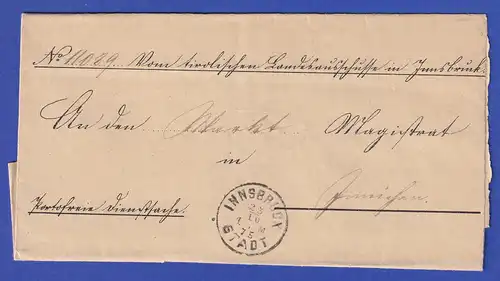 No 11029. Vom tirolischen Landesausschusse in Innsbruck.
An den Markt Magistrat
in
Innichen.
Portofreie Dienstsache.
INNSBRUCK
STADT